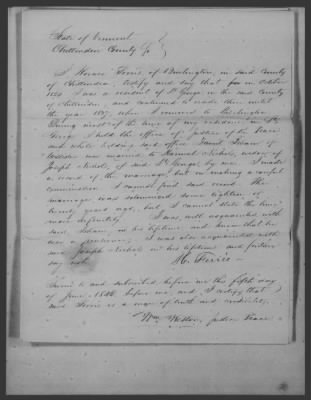 State of Vermont
Chittenden County ss
I Horace Ferris of Burlington, in said County
of Chittenden, testify and say that for in October
I was a resident of St George in the said county
of Chittenden, and continued to reside there until
the year 1837, when I removed to Burlington
During most of the time of my residence in St
George I held the office of Justice of the Peace
and while holding said office Daniel Isham of
Williston was married to Nichols, widow of
Joseph Nichols, of said St George, by me. I made
a record of the marriage, but on making a careful
examination I cannot find said record. The
marriage was solemnized some eighteen or
twenty years ago, but, I cannot state the time
more definitely. I was well acquainted with
said Isham, in his lifetime and know that he
was a pensioner; I was also acquainted with
said Joseph Nichols in his lifetime and further
say not.
H. Ferris
Sworn to and subscribed before me this fifth day
of June, before me, and I certify that
Ferris is a man of truth and credibility,
Wm Justice Peace